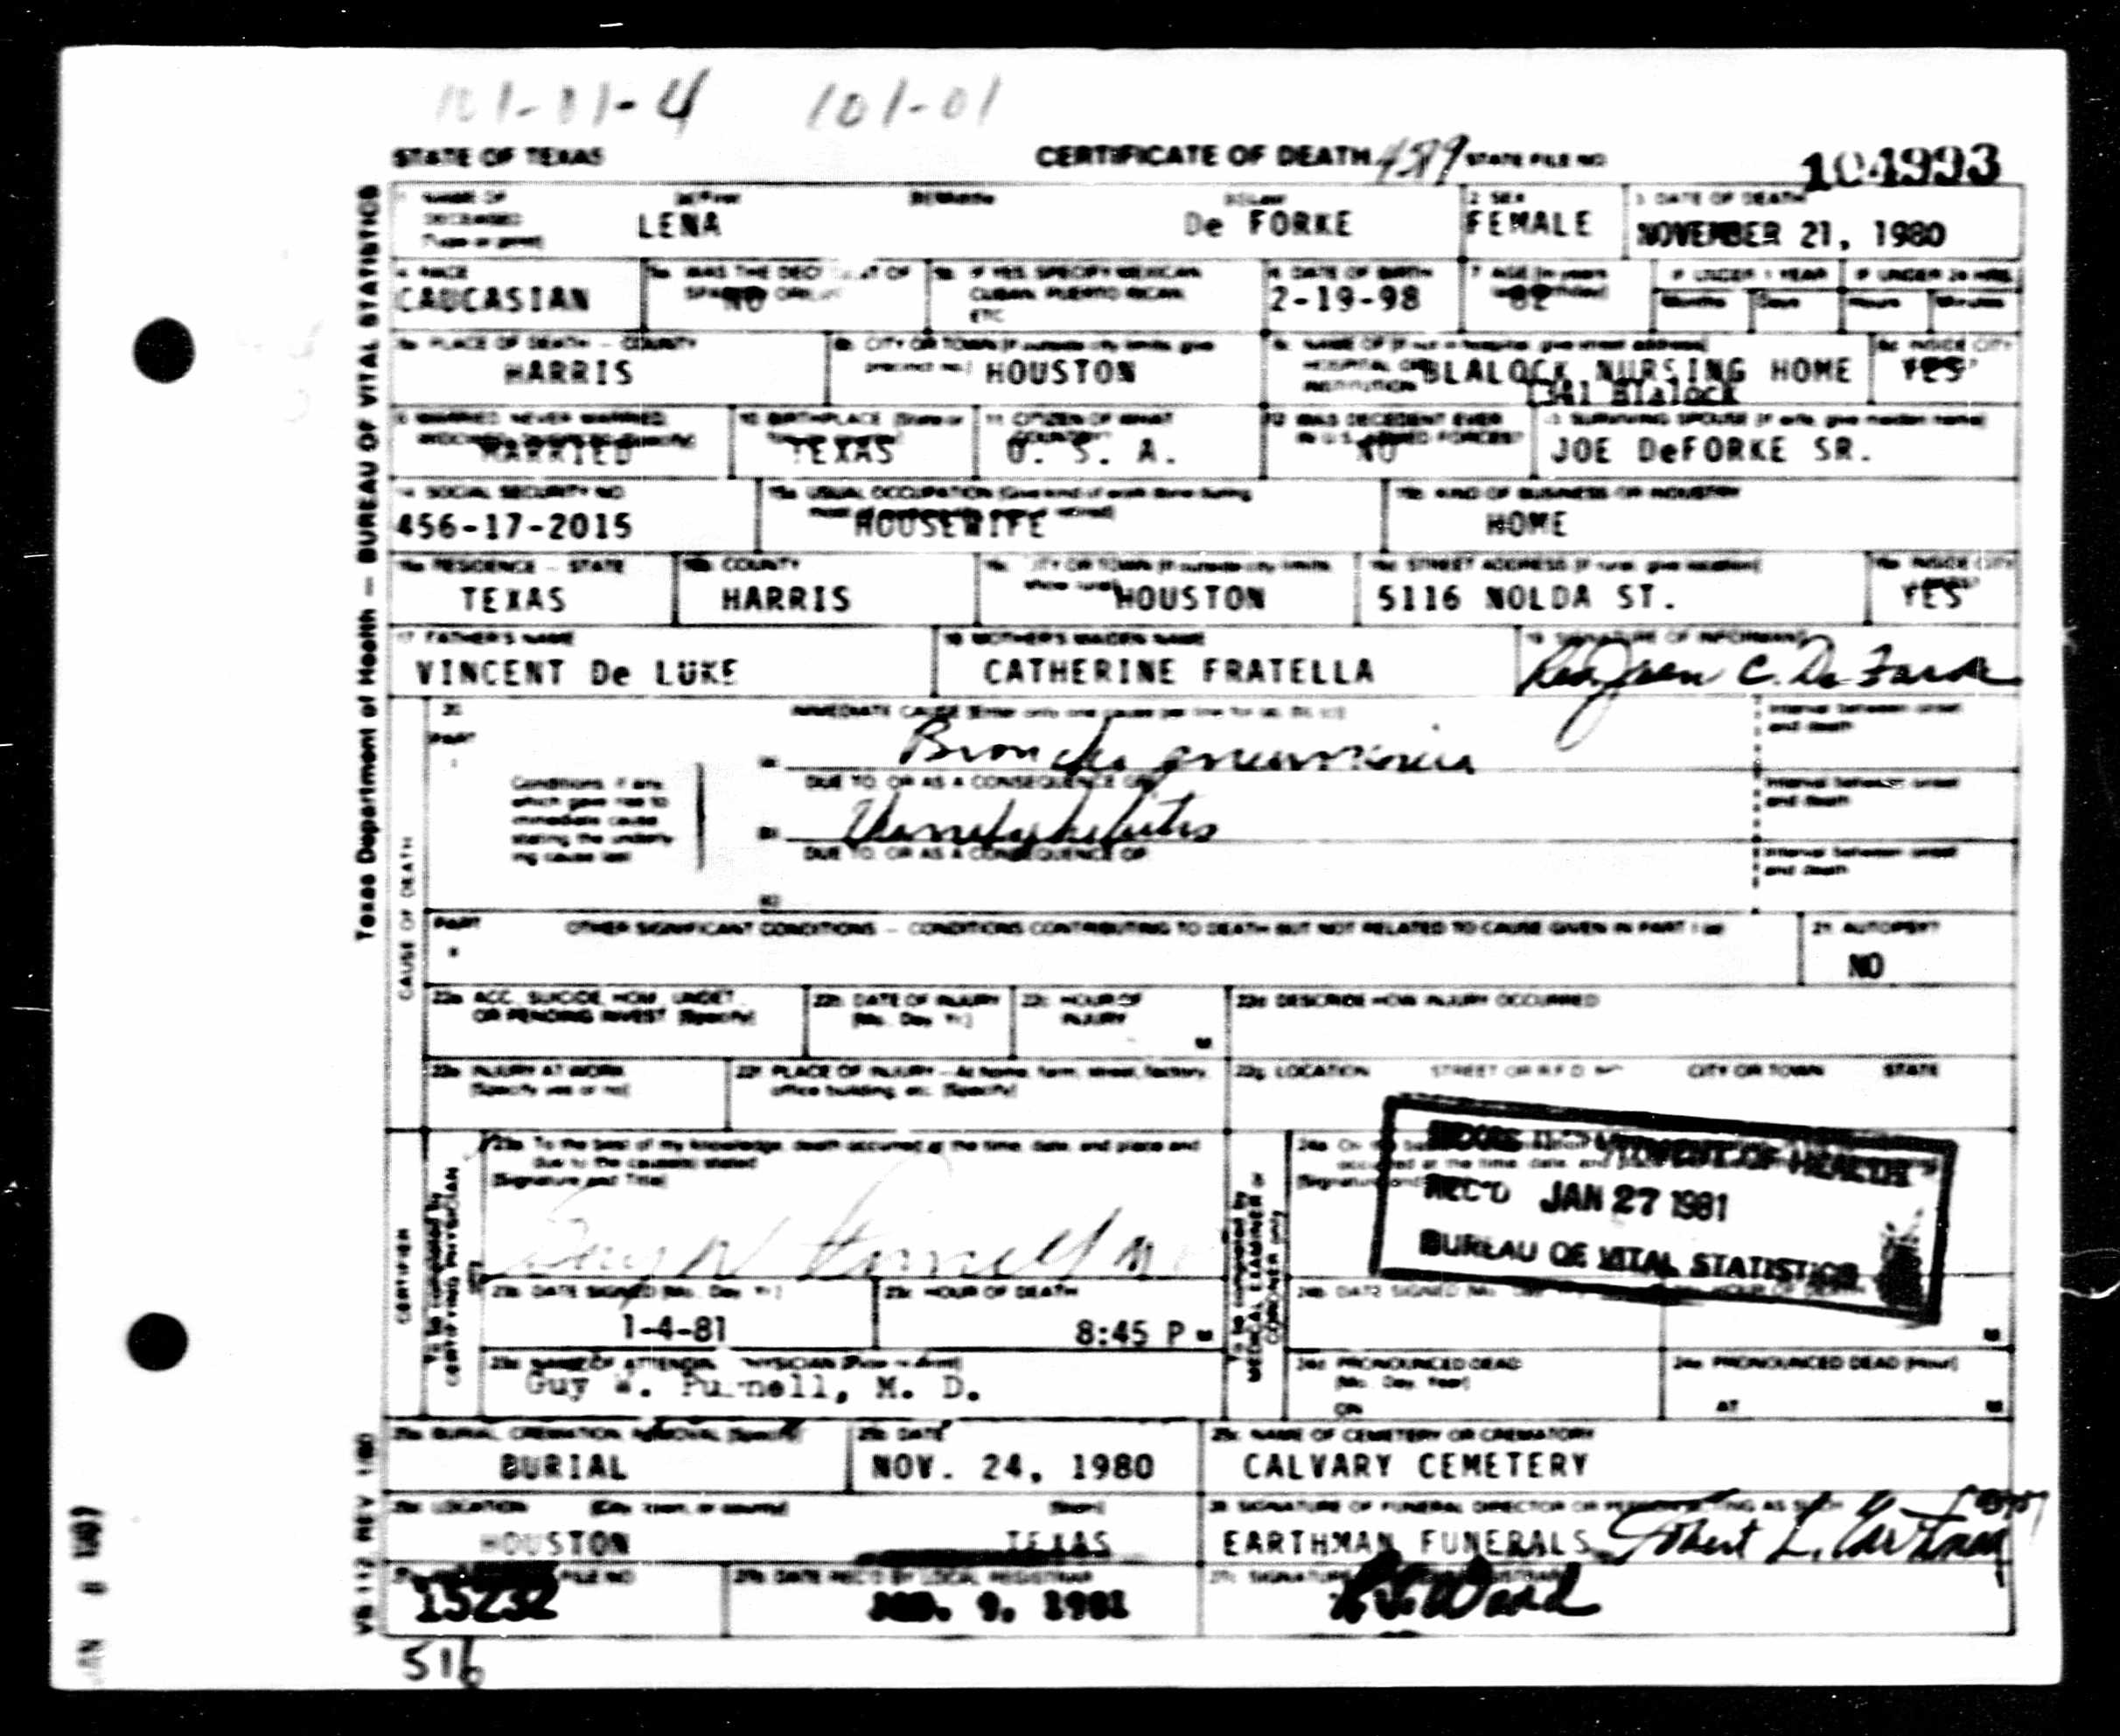 101-01-4 101-01
STATE OF TEXAS CERTIFICATE OF DEATH STATE FILE NO 104993
1 NAME OF DECEASED (Type or print) (a) First (b) Middle (c) Last 2 SEX 3 DATE OF DEATH
LENA De FORKE FEMALE NOVEMBER 21, 1980
4 RACE 5a WAS THE DECEDENT OF SPANISH ORIGIN 5b IF YES, SPECIFY MEXICAN, CUBAN, PUERTO RICAN, ETC 6 DATE OF BIRTH 7 AGE (In years last birthday) IF UNDER 1 YEAR IF UNDER 24 HRS
Months Days Hours Minutes
CAUCASIAN NO 2-19-98 82
8a PLACE OF DEATH - COUNTY 8b CITY OR TOWN (If outside city limits, give precinct no.) 8c NAME OF (If not in hospital, give street address) HOSPITAL OR INSTITUTION INSIDE CITY
HARRIS HOUSTON BLALOCK NURSING HOME YES
1341 Blalock
9 MARRIED, NEVER MARRIED, 10 BIRTHPLACE (State or 11 CITIZEN OF WHAT COUNTRY 12 WAS DECEDENT EVER IN U.S. ARMED FORCES? 13 SURVIVING SPOUSE (If wife, give maiden name)
MARRIED TEXAS U. S. A. NO JOE DeFORKE SR.
14 SOCIAL SECURITY NO 15a USUAL OCCUPATION (Give kind of work done during most of 15b KIND OF BUSINESS OR INDUSTRY
456-17-2015 HOUSEWIFE HOME
16a RESIDENCE - STATE 16b COUNTY 16c CITY OR TOWN (If outside city limits, show rural) 16d STREET ADDRESS (If rural, give location) 16e INSIDE CITY
TEXAS HARRIS HOUSTON 5116 NOLDA ST. YES
17 FATHER'S NAME 18 MOTHER'S MAIDEN NAME 19 SIGNATURE OF INFORMANT
VINCENT De LUKE CATHERINE FRATELLA C. De Forke
20 PART I IMMEDIATE CAUSE (Enter only one cause per line for (a), (b), (c)) Interval between onset and death
(a) Broncho pneumonia
Conditions, if any, which gave rise to immediate cause stating the underlying cause last
DUE TO, OR AS A CONSEQUENCE OF Interval between onset and death
(b)
DUE TO, OR AS A CONSEQUENCE OF Interval between onset and death
(c)
PART II OTHER SIGNIFICANT CONDITIONS - CONDITIONS CONTRIBUTING TO DEATH BUT NOT RELATED TO CAUSE GIVEN IN PART I (a) 21 AUTOPSY?
NO
22a ACC, SUICIDE, HOM, UNDET, OR PENDING INVEST (Specify) 22b DATE OF INJURY (Mo., Day, Yr.) 22c HOUR OF INJURY M 22d DESCRIBE HOW INJURY OCCURRED
22e INJURY AT WORK (Specify yes or no) 22f PLACE OF INJURY - At home, farm, street, factory, office building, etc. (Specify) 22g LOCATION STREET OR R.F.D. NO CITY OR TOWN STATE
23a To the best of my knowledge, death occurred at the time, date, and place and due to the cause(s) stated
(Signature and Title)
Guy W Purnell M
DEPARTMENT OF HEALTH
REC'D JAN 27 1981
BUREAU OF VITAL STATISTICS
23b DATE SIGNED (Mo., Day, Yr.) 23c HOUR OF DEATH 24b DATE SIGNED HOUR OF DEATH
1-4-81 8:45 P M M
23d NAME OF ATTENDING PHYSICIAN 24d PRONOUNCED DEAD (Mo., Day, Year) 24e PRONOUNCED DEAD (Hour)
Guy W. Purnell, M. D. ON AT M
25a BURIAL, CREMATION, REMOVAL (Specify) 25b DATE 25c NAME OF CEMETERY OR CREMATORY
BURIAL NOV. 24, 1980 CALVARY CEMETERY
25d LOCATION (City, town, or county) (State) 26 SIGNATURE OF FUNERAL DIRECTOR OR PERSON ACTING AS SUCH
HOUSTON TEXAS EARTHMAN FUNERALS Robert L. Earthman
FILE NO 27b DATE REC'D BY LOCAL REGISTRAR 27c SIGNATURE
15232 JAN. 9, 1981 Ward
516
Texas Department of Health - BUREAU OF VITAL STATISTICS
CAUSE OF DEATH
CERTIFIER
To be completed by CERTIFYING PHYSICIAN
To be completed by MEDICAL EXAMINER or CORONER only
VS 112 REV 1/80